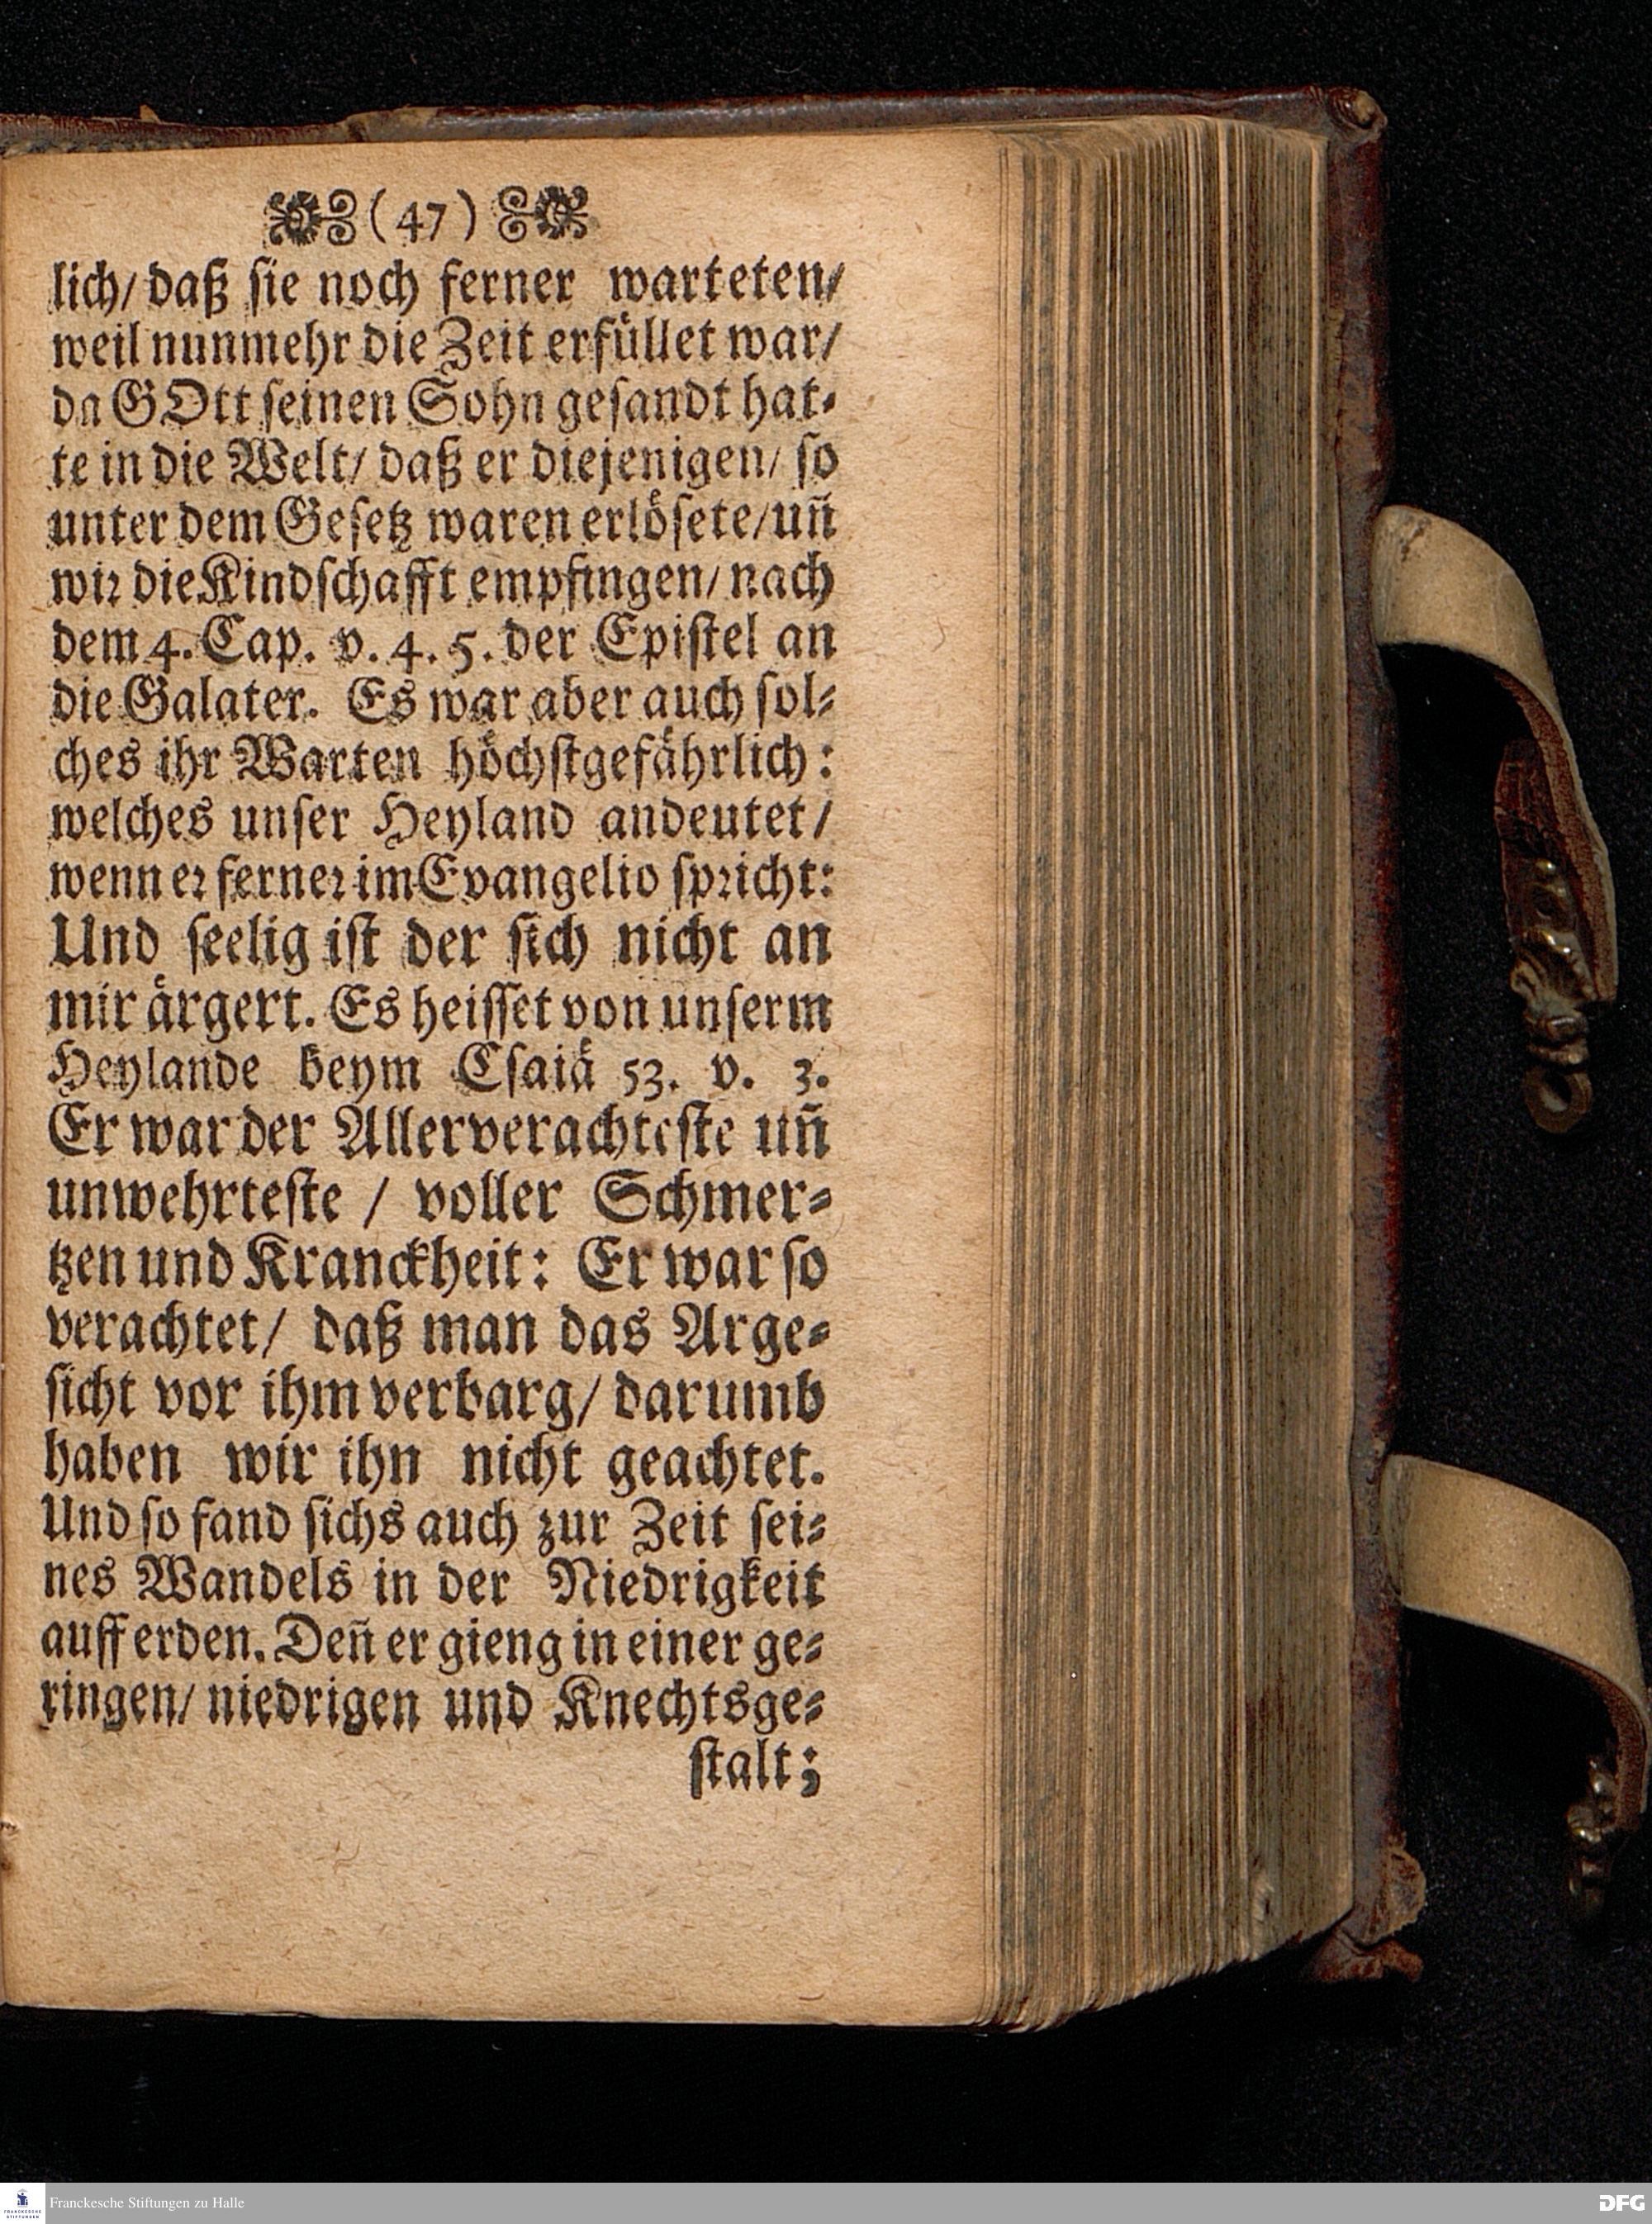 (47)
lich/ daß sie noch ferner warteten/
weil nunmehr die Zeit erfüllet war/
da GOtt seinen Sohn gesandt hat-
te in die Welt/ daß er diejenigen/ so
unter dem Gesetz waren erlösete/ uñ
wir die Kindschafft empfingen/ nach
dem 4. Cap. v. 4. 5. der Epistel an
die Galater. Es war aber auch sol-
ches ihr Warten höchstgefährlich:
welches unser Heyland andeutet/
wenn er ferner im Evangelio spricht:
Und seelig ist der sich nicht an
mir ärgert. Es heisset von unserm
Heylande beym Esaiä 53. v. 3.
Er war der Allerverachteste uñ
unwehrteste / voller Schmer-
tzen und Kranckheit: Er war so
verachtet/ daß man das Arge-
sicht vor ihm verbarg/ darumb
haben wir ihn nicht geachtet.
Und so fand sichs auch zur Zeit sei-
nes Wandels in der Niedrigkeit
auff erden. Deñ er gieng in einer ge-
ringen/ niedrigen und Knechtsge-
stalt;
Franckesche Stiftungen zu Halle
DFG